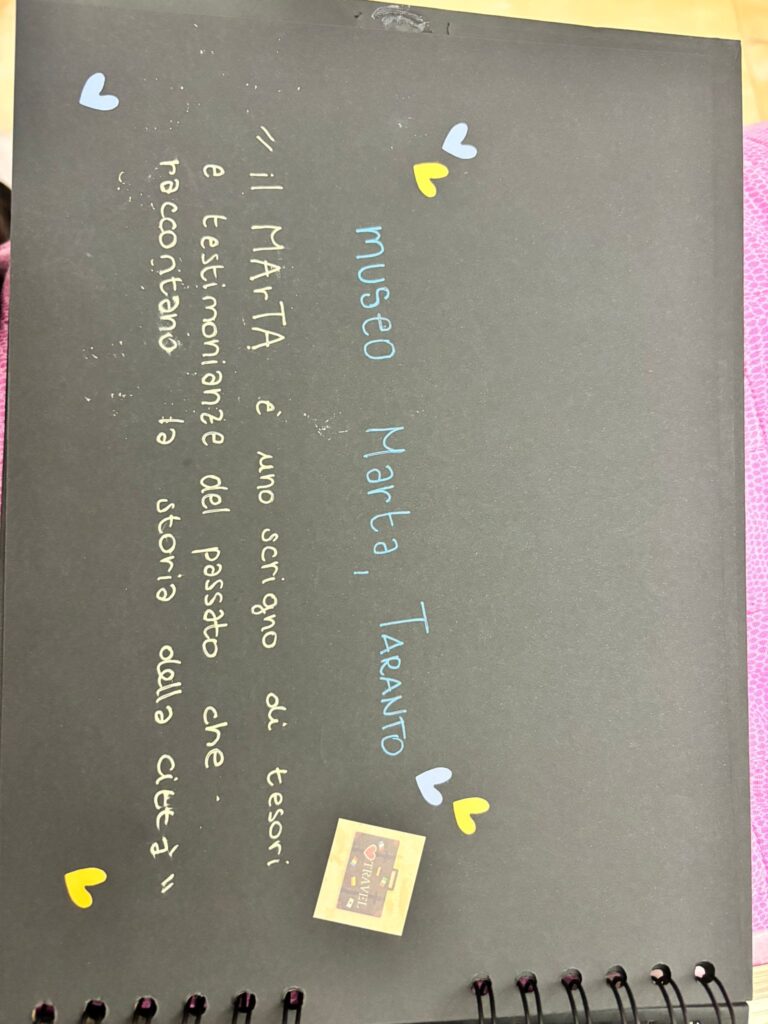 museo Marta, TARANTO
"il MArTA è uno scrigno di tesori
e testimonianze del passato che
raccontano la storia della città"
TRAVEL